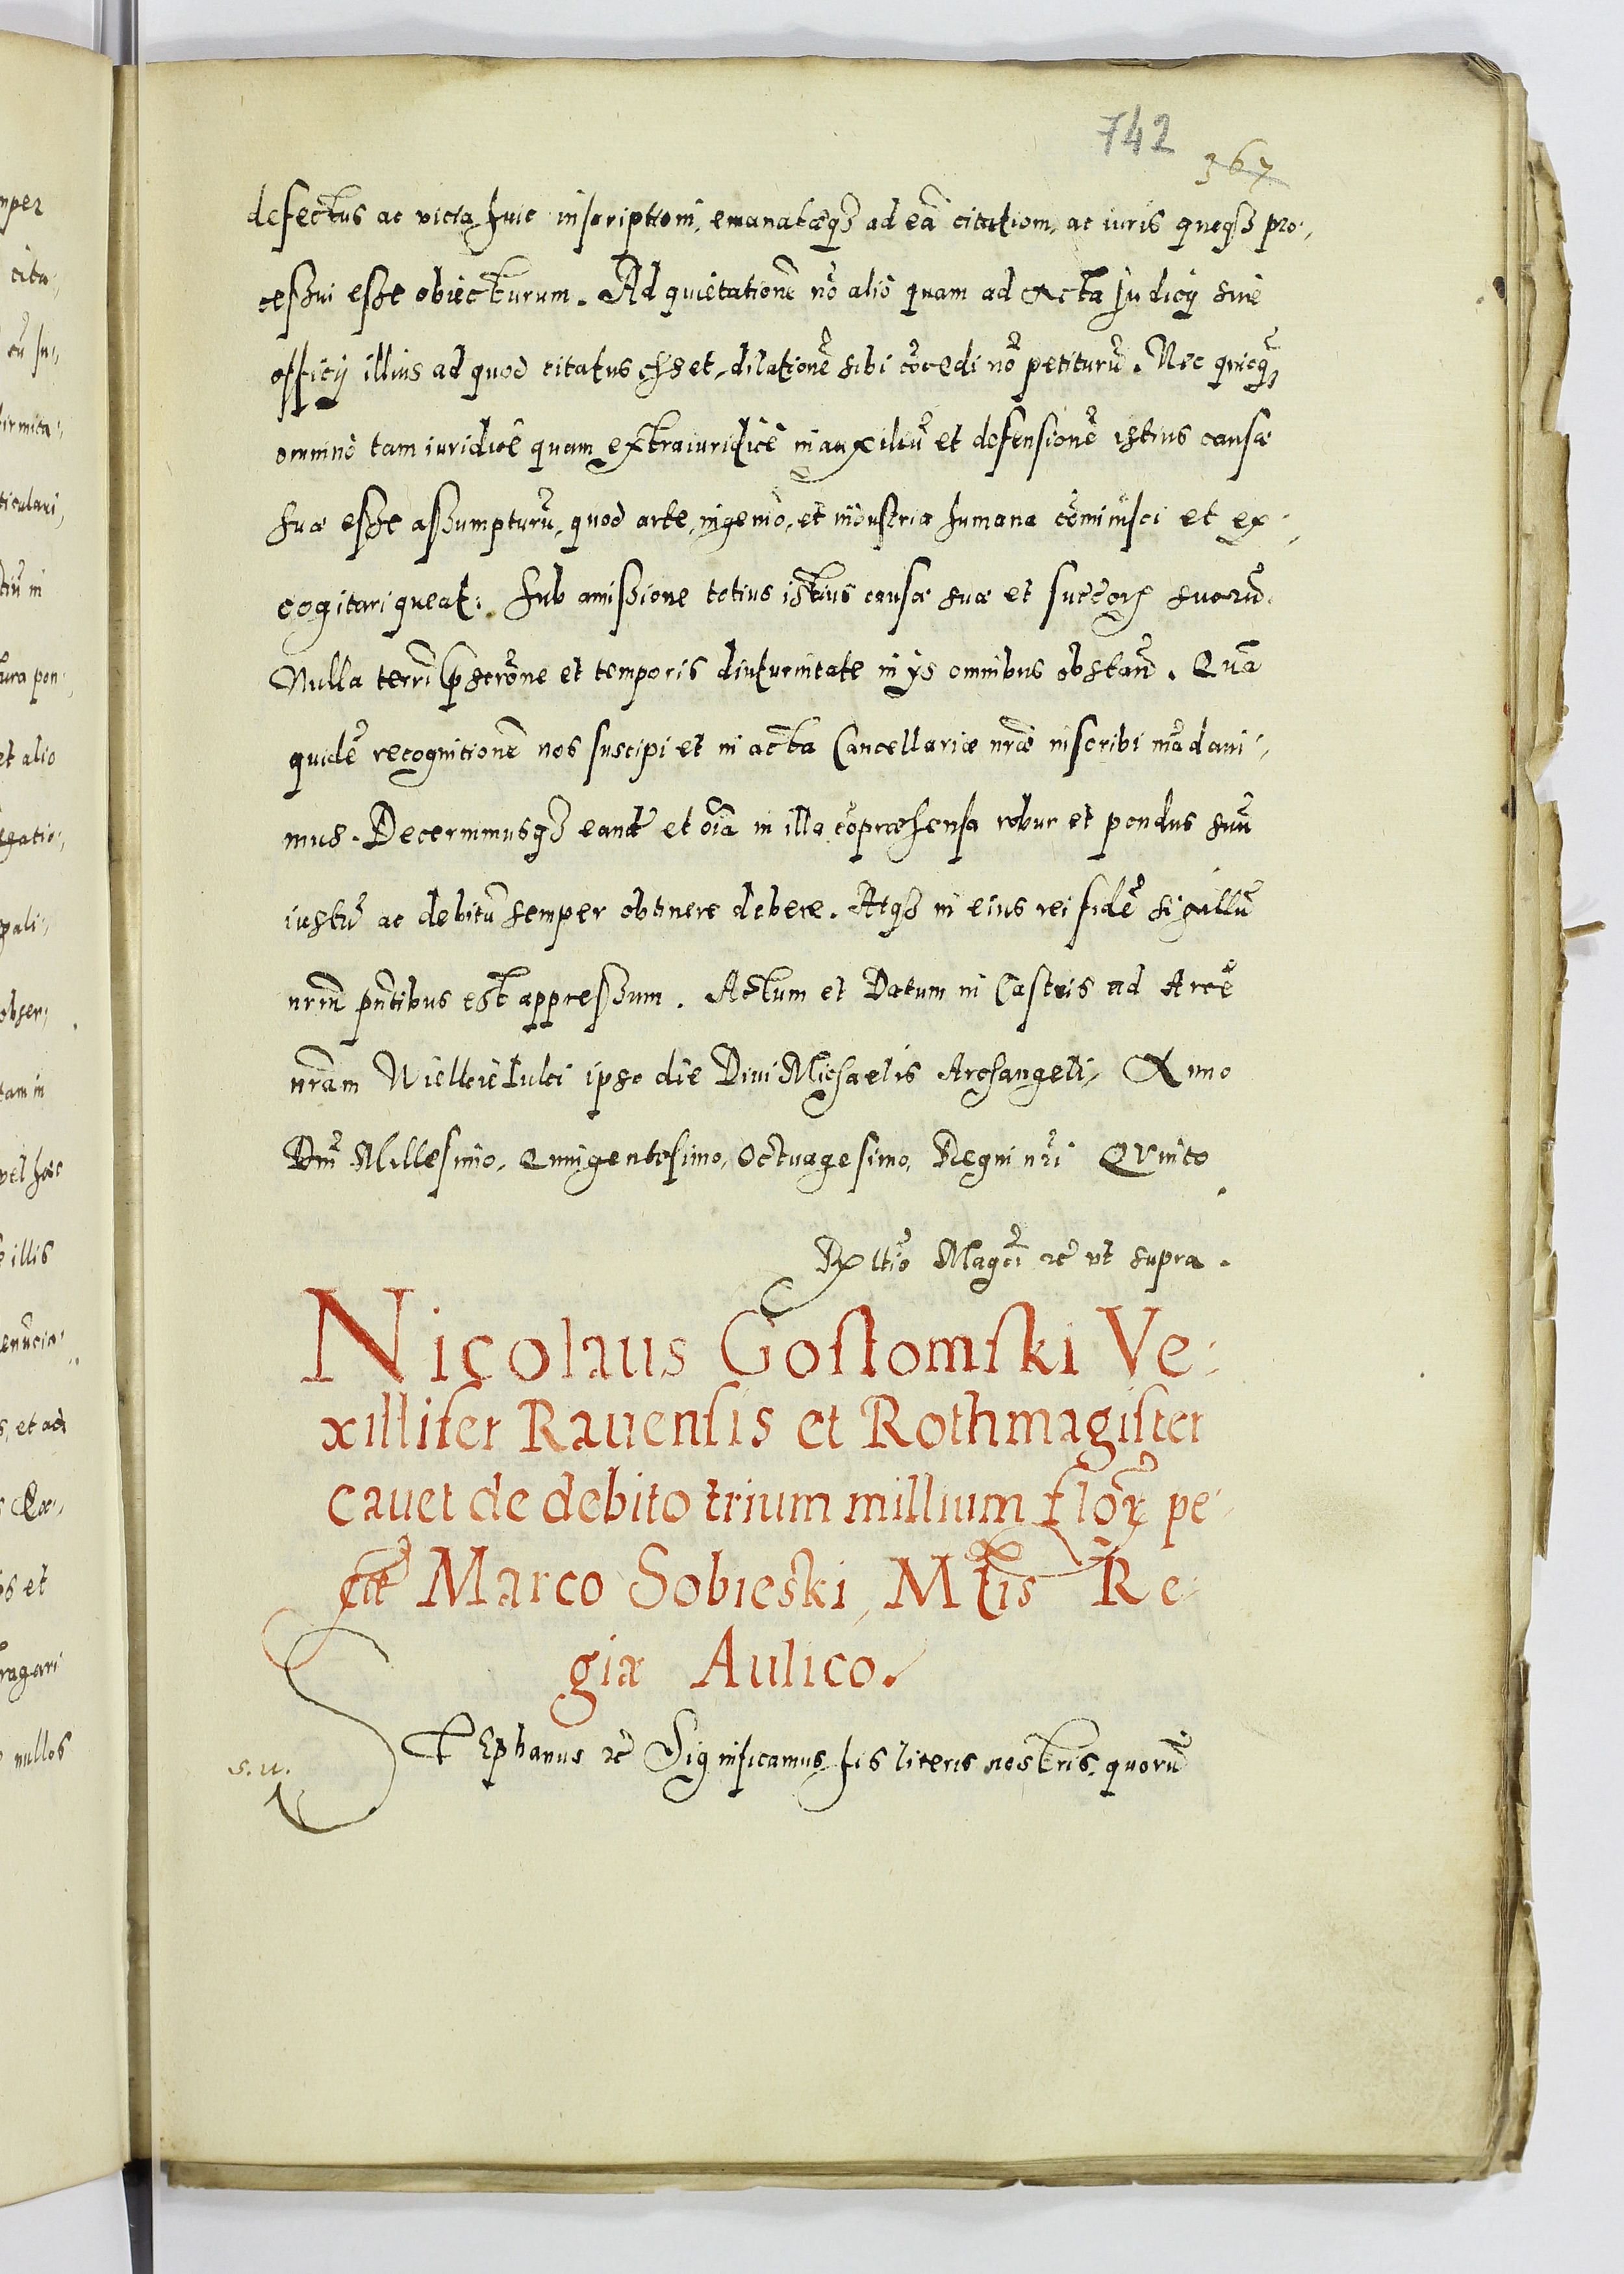 742
367
defectus ac vicia huic inscriptioni, emanatæq₃ ad eā citationi, ac iuris queq₃ pro„
cessui esse obiecturum. Ad quietationē nō alio quam ad Acta Judicij siue
officij illius ad quod citatus esset, dilationē sibi cōcedi nō petiturū. Nec quicq̄
omnino tam iuridicè quam extraiuridicè in auxiliū et defensionē istius causæ
suæ esse assumpturū, quod arte, ingenio, et industria humana cōminisci et ex„
cogitari queat: Sub amissione totius istius causæ suæ et succorꝝ suorū.
Nulla terrī pscrōne et temporis diuturnitate in ijs omnibus obstan̄. Quā
quidē recognitionē nos suscipi et in acta Cancellariæ nr̄æ inscribi mādaui„
mus. Decernimusq₃ eandē et oīa in illa cōpræhensa robur et pondus suū
iustū ac debitū semper obtinere debere. Atq₃ in eius rei fidē sigillū
nrm̄ pn̄tibus est appressum. Actum et Datum in Castris ad Arcē
nr̄am Wielkieluki ipso die Diui Michaelis Archangeli, Anno
Dnī Millesimo, Quingentesimo, Octuagesimo, Regni nr̄i Quinto
Rltio Magcī &c̄ vt supra.
Nicolaus Gostomski Ve„
xillifer Rauensis et Rothmagister
cauet de debito trium millium florꝝ pe„
cūē Marco Sobieski, Mt̄is Re„
giæ Aulico.
s. u.
STEphanus &c̄ Significamus his literis nostris, quorū